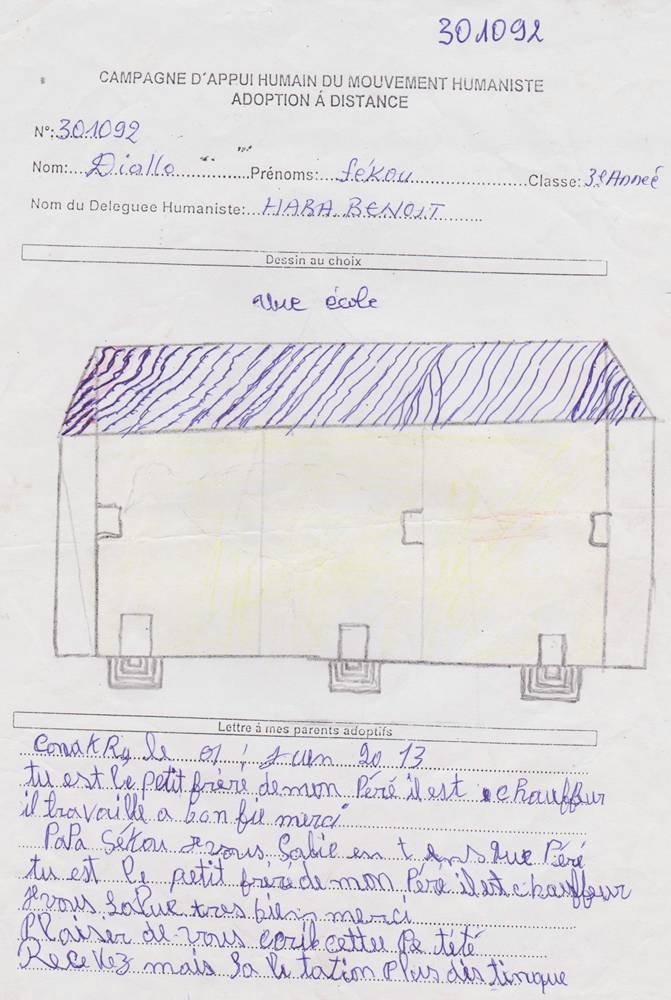 301092
CAMPAGNE D'APPUI HUMAIN DU MOUVEMENT HUMANISTE
ADOPTION Á DISTANCE
N°: 301092
Nom: Diallo Prénoms: Sékou Classe: 3e Anneé
Nom du Deleguee Humaniste: HABA BENOIT
Dessin au choix
une école
Lettre á mes parents adoptifs
ConakRy le 01 Juin 2013
tu est le petit frère de mon Péré il est chauffeur
il travaille a bon fie merci
PaPa Sékou Je vous en que Péré
tu est le petit frere de mon Péré il est chauffeur
Je vous salue tres bien merci
Plaiser de vous ecrit cette Pe tété
Recevez mais Sa lu tation Plus dis tingue